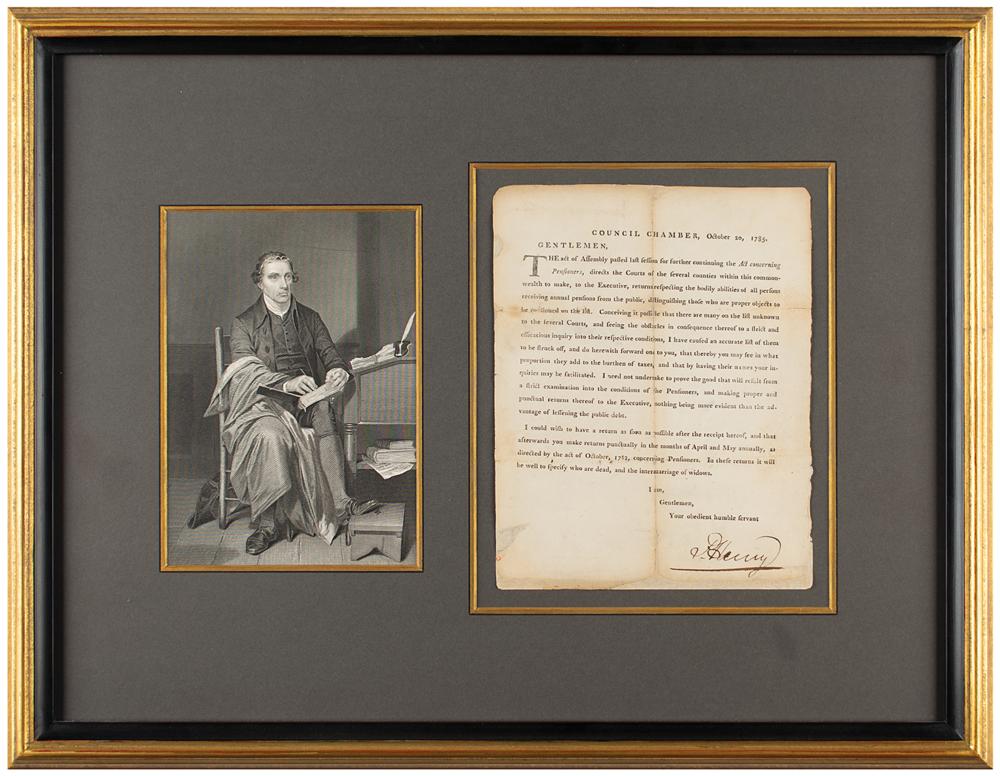 COUNCIL CHAMBER, October 20, 1785.
GENTLEMEN,
THE act of Assembly passed last session for further continuing the Act concerning
Pensioners, directs the Courts of the several counties within this common-
wealth to make, to the Executive, returns respecting the bodily abilities of all persons
receiving annual pensions from the public, distinguishing those who are proper objects to
be continued on this list. Conceiving it possible that there are many on the list unknown
to the several Courts, and seeing the obstacles in consequence thereof to a strict and
efficacious inquiry into their respective conditions, I have caused an accurate list of them
to be struck off, and do herewith forward one to you, that thereby you may see in what
proportion they add to the burthen of taxes, and that by having their names your in-
quiries may be facilitated. I need not undertake to prove the good that will result from
a strict examination into the conditions of the Pensioners, and making proper and
punctual returns thereof to the Executive, nothing being more evident than the ad-
vantage of lessening the public debt.
I could wish to have a return as soon as possible after the receipt hereof, and that
afterwards you make returns punctually in the months of April and May annually, as
directed by the act of October, 1782, concerning Pensioners. In these returns it will
be well to specify who are dead, and the intermarriage of widows.
I am,
Gentlemen,
Your obedient humble servant
P. Henry